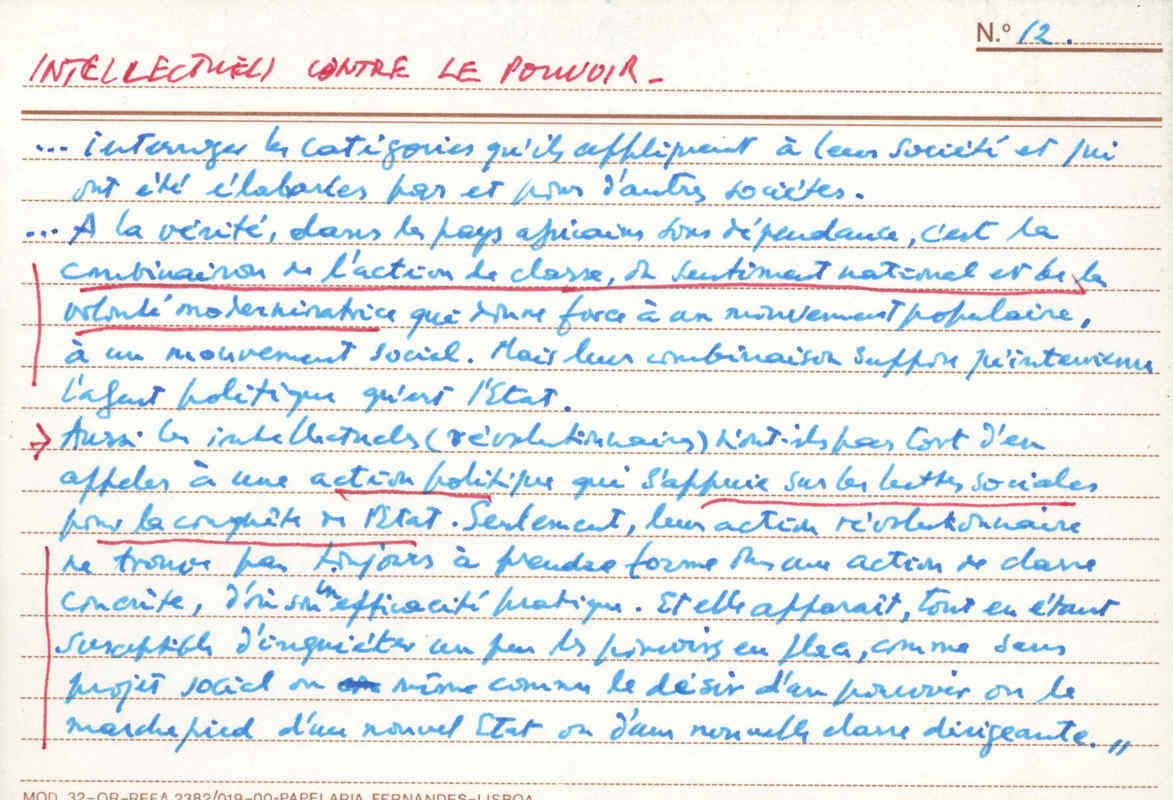 N.º 12.
INTELLECTUELS CONTRE LE POUVOIR -
... interroger les catégories qu'ils appliquent à leur société et qui
ont été élaborées par et pour d'autres sociétés.
... A la vérité, dans les pays africains sous dépendance, c'est la
combinaison de l'action de classe, du sentiment national et de la
volonté modernisatrice qui donne force à un mouvement populaire,
à un mouvement social. Mais leur combinaison suppose qu'intervienne
l'agent politique qu'est l'Etat.
→ Aussi les intellectuels (révolutionnaires) n'ont-ils pas tort d'en
appeler à une action politique qui s'appuie sur les luttes sociales
pour la conquête de l'Etat. Seulement, leur action révolutionnaire
ne trouve pas toujours à prendre forme dans une action de classe
concrète, d'où son inefficacité pratique. Et elle apparaît, tout en étant
susceptible d'inquiéter un peu les pouvoirs en place, comme sans
projet social ou même comme le désir d'un pouvoir ou le
marchepied d'un nouvel Etat ou d'une nouvelle classe dirigeante. "
MOD. 32-OR-REFA 2382/019-00-PAPELARIA FERNANDES-LISBOA